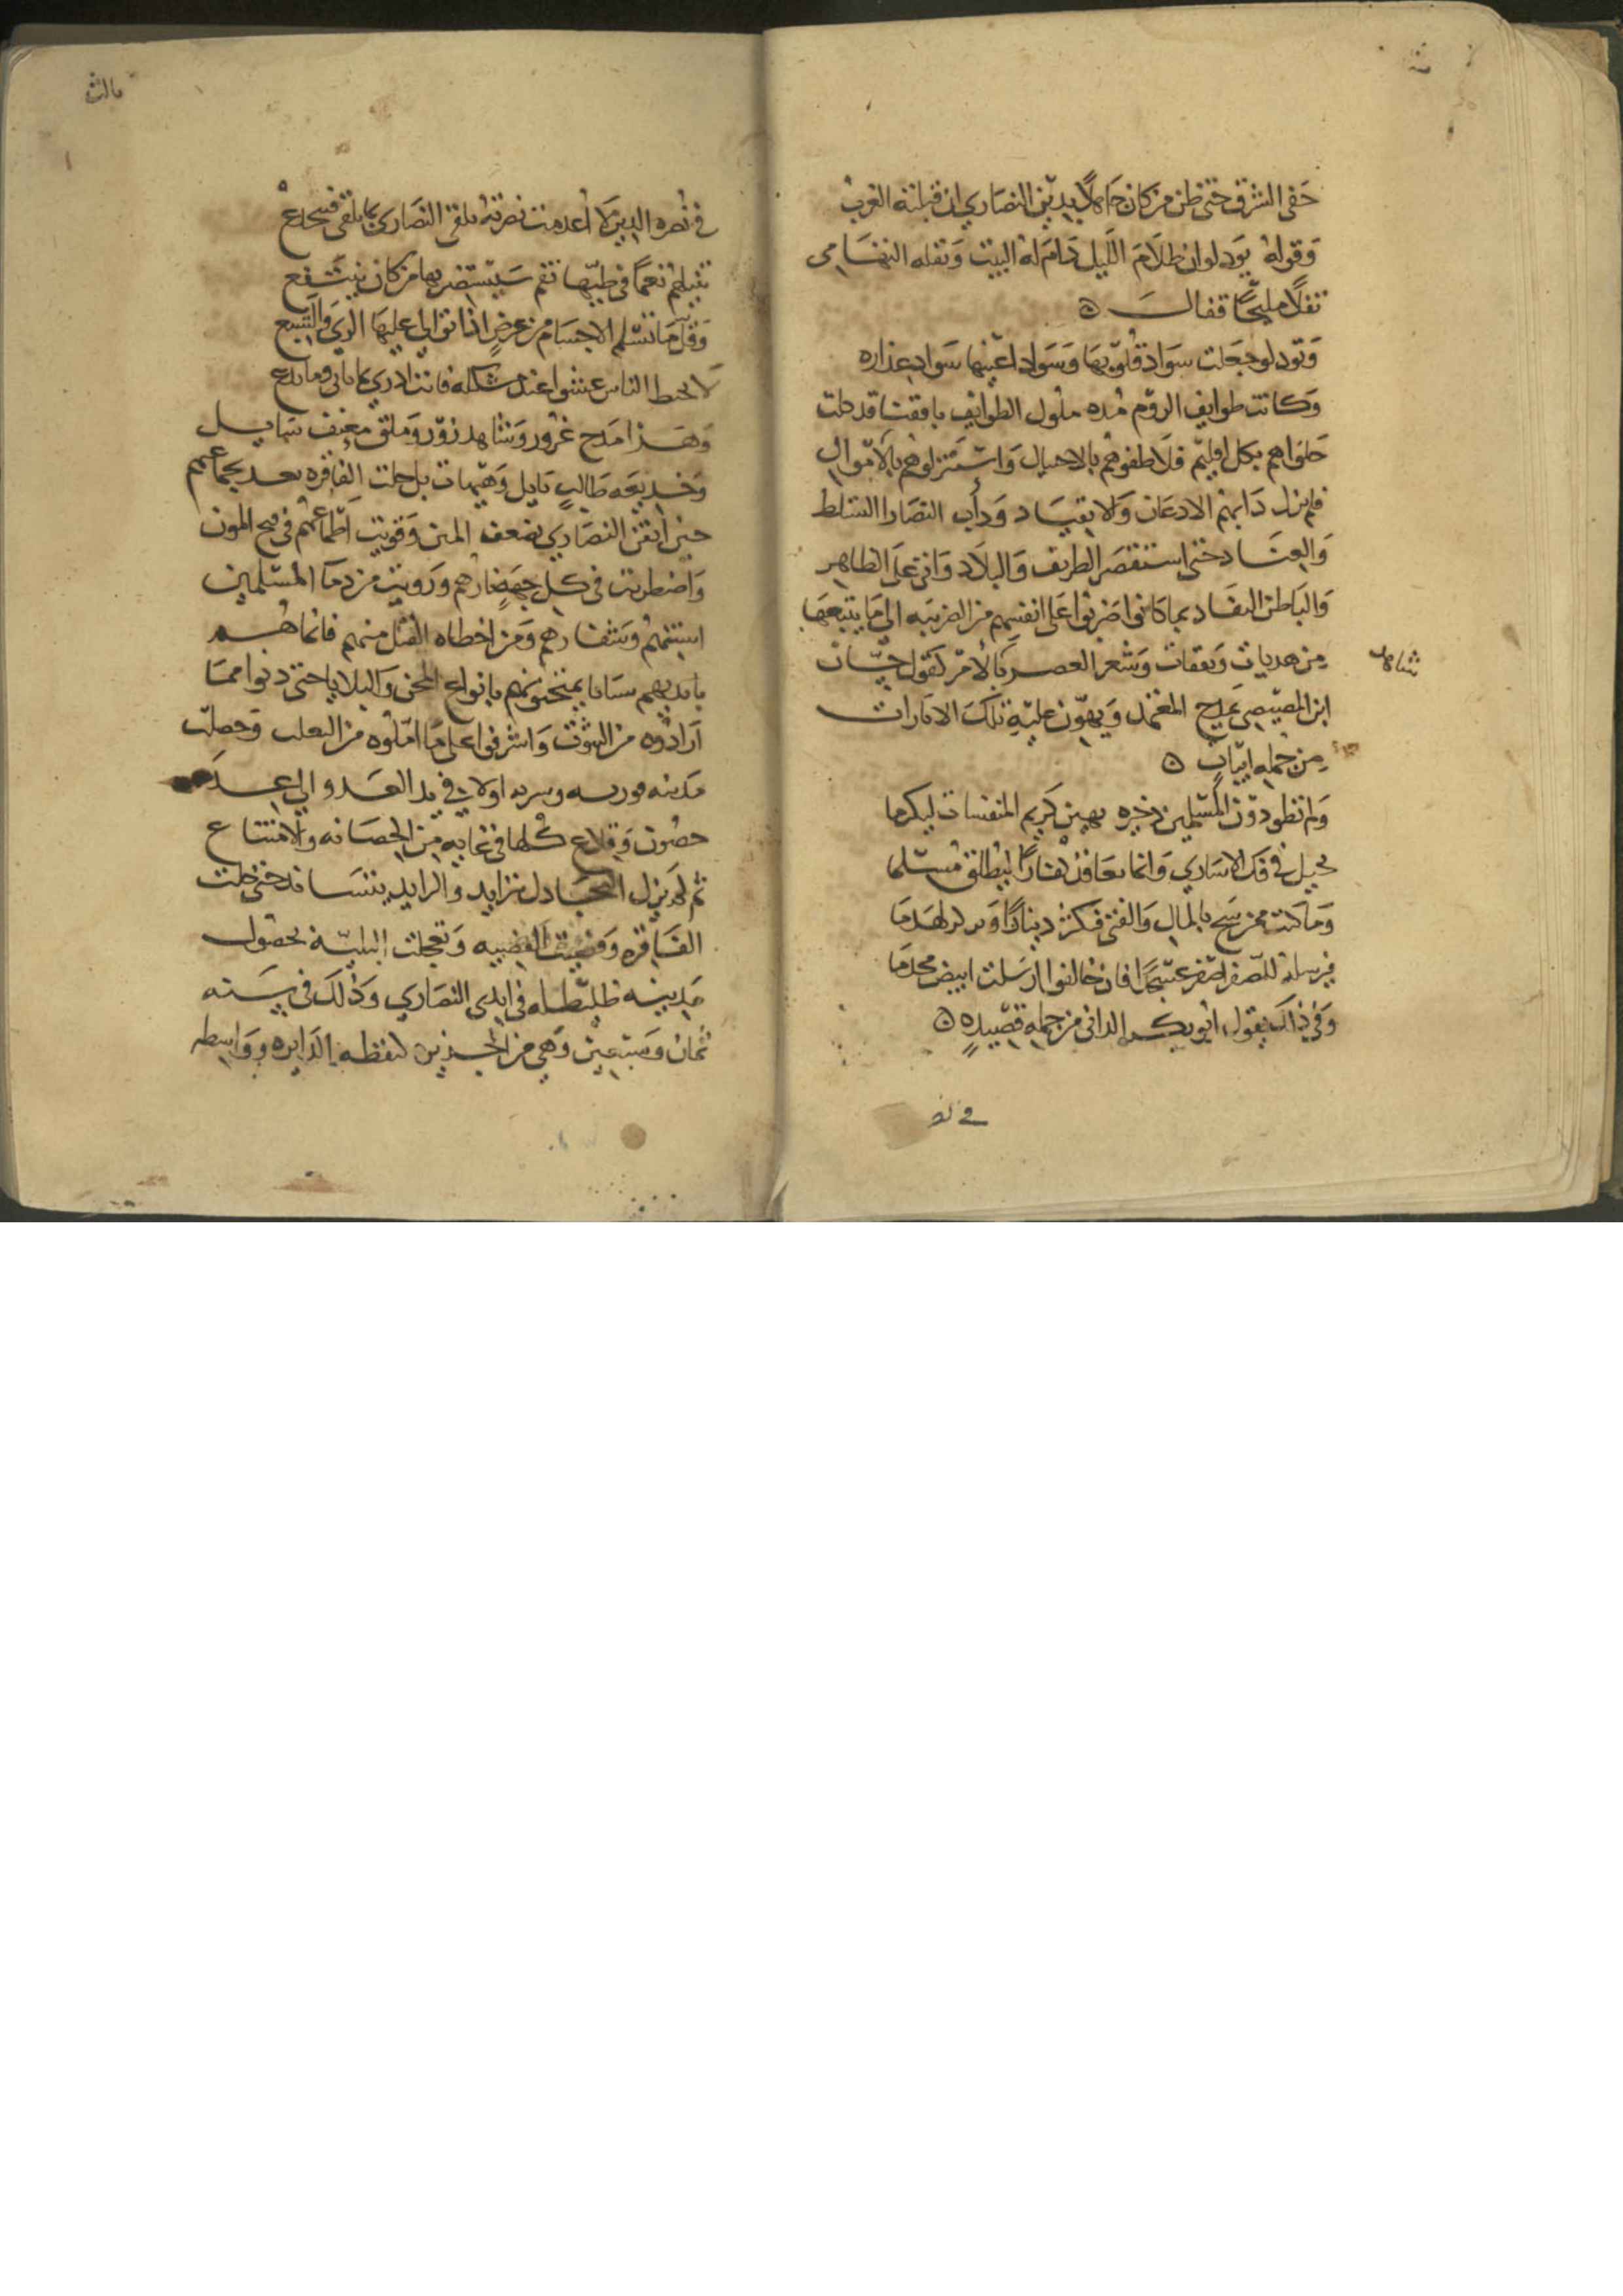 حَفى الشرق حتى ظن من كان جاهلا بدين النصاري ان قبلته الغرب
وَقوله يود لو ان ظلام الليل دَامَ له البيت وَنقله التهامي
نقلاً مليحًا فقالَ ٥
وَتود لو جعلت سَوَاد قلوبها وَسَوَاد اعينها سَوَاد عذاره
وَكانت طوايف الروم مُده ملوك الطوايف بافقنا قد حلت
بكل اقليم فلاطفوهم بالاحيال وَاستنزلوهم بالاموال
فلم يزل دَابهم الادعان وَالانقياد وَدأب النصارا التسلط
وَالعناد حتى استنقصَر الطريف وَالبلاد وَاتى على الظاهر
وَالباطن النفاد بما كانوا ضربوا على انفسهم من الضربيه الى مَا يتبعها
من هديات وَنفقات وَشعر العصر بالأمر كقول حسّان
شاهـ
ابن المصيصي يمدح المعتمد وَيهوّن عليه تلك الامارات
من جمله ابياتٍ ٥
وَلم تطو دون المسلمين ذخيره تهين كريم المنفسات ليكرما
تحيل في فك الاسارى وَانما تعاقد كفارًا ليطلق مسلما
وَما كنت ممن شح بالمال وَالفتى فتكنز دينارًا
فيرسله للصفر اصفر عسجدًا فان خالفوا ارسلت ابيض مخدمَا
وَفي ذلك يقول ابو بكر الداني من جمله قصيدهٍ ٥
في نصـ
مالث
في نصره الدين لا أعدمت نصرته تلقى النصَاري بما تلقى فتنخدع
تنيلهم نعمًا في طيّها نقم سَيستضر بها من كان ينتفع
وَقل مَا تسلم الاجسام من عرضٍ اذا توالى عليها الري وَالشبع
لا يخبط الناس عشوا عند مشكله فانت ادري بما تاتي وما تدع
وَهذا مَدح غرور وَشاهد زور وَملق معتف سَايل
وَخديعَه طالب نايل وَهَيهات بل حلت الفاقره بعد بجماعتهم
حين أيقن النصَاري بضعف المنن وَقويت اطماعهم في فتح المدن
وَاضطرمت في كل جهةٍ نارهم وَرويت من دمَا المسلمين
اسنتهم وَشفارهم وَمن اخطاه القتل منهم فانما هُم
بايديهم سبايا يمتحنونهم بانواع المحن وَالبلايا حتى دنوا ممَّا
أرَادوه من التوثب وَاشرفوا على مَا امّلوه من التغلب وَحصلت
مَدينه قوريه وسريه اولا في يد العَدو الى عِدَه
حصُون وَقلاع كُلها في غايه مِن الحصَانه وَالامتناع
ثم لم يزل التخاذل يتزايد والتدابر يتساند حتى حلت
الفَاقره وَقضيت القضيه وَتعجلت البليّه بحصُول
مَدينه طليطله في ايدي النصَاري وَذلك في سَنه
ثمان وَسبعين وَهي من الجزيره كنقطه الدَايره وَوَاسطه